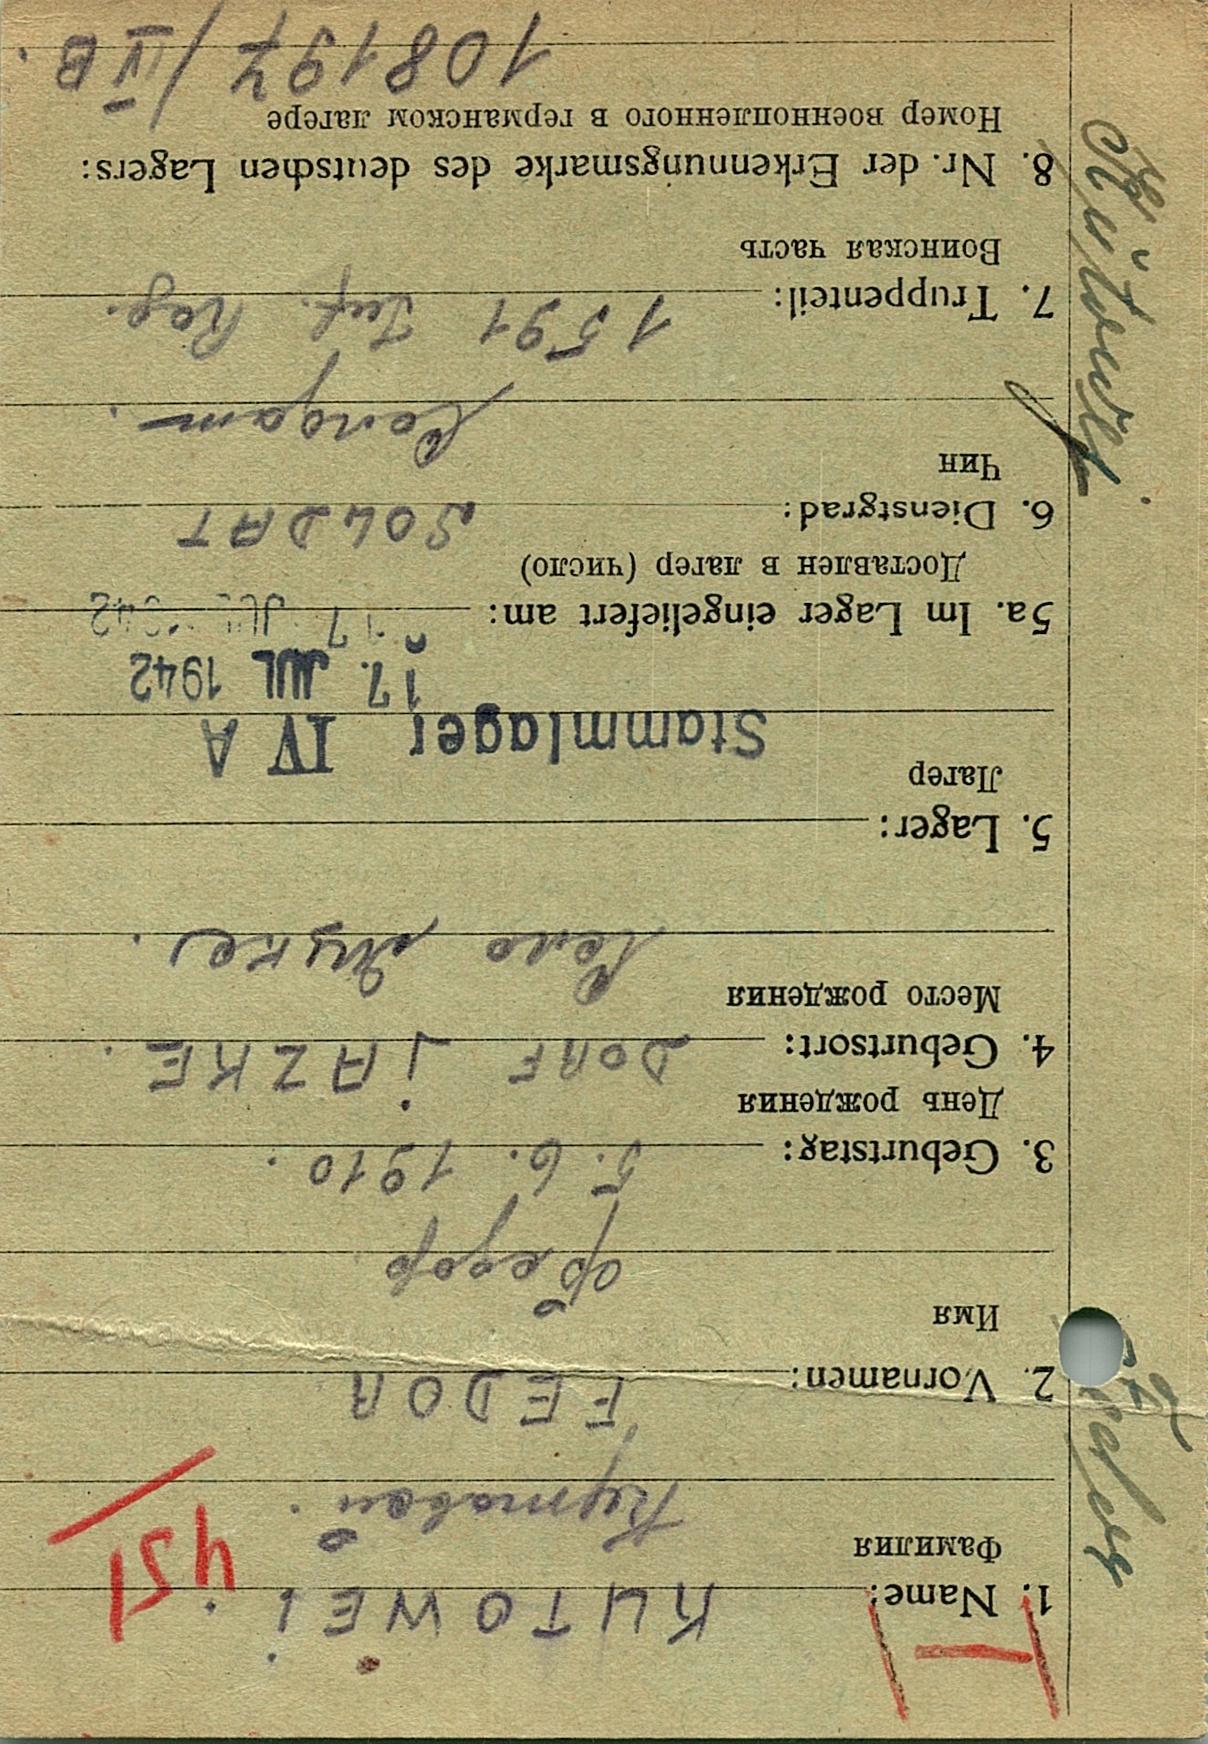 1. Name: KUTOWEi
Фамилия
451
2. Vornamen: FEDOR
Имя
Фёдор.
3. Geburtstag: 5. 6. 1910.
День рождения
4. Geburtsort: DORF JAZKE.
Место рождения
Село
5. Lager:
Лагер
Stammlager IV A
17. JUL 1942
5a. Im Lager eingeliefert am: 17 JUL 1942
Доставлен в лагер (число)
6. Dienstgrad: SOLDAT
Чин
Солдат.
7. Truppenteil: 1591 Inf. Reg.
Воинская часть
8. Nr. der Erkennungsmarke des deutschen Lagers:
Номер военнопленного в германском лагере
108197/IV B.